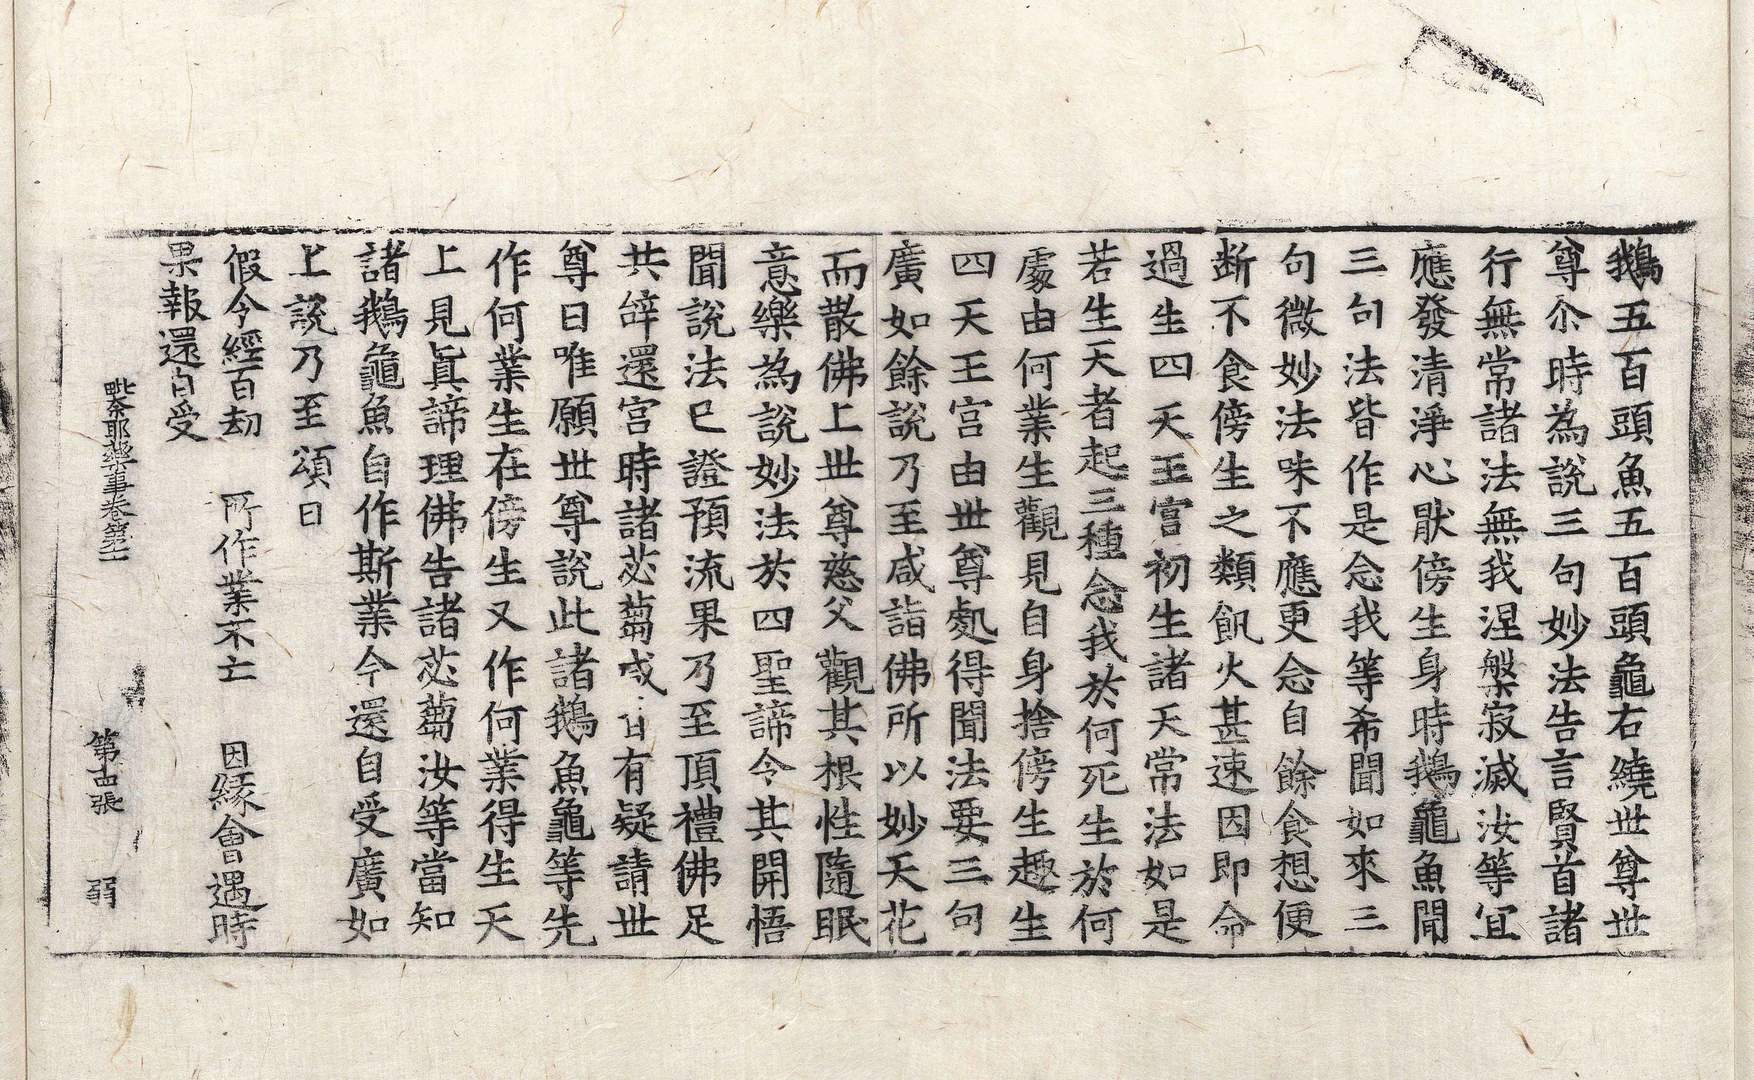 鵝五百頭魚五百頭龜右繞世尊世
尊尒時為說三句妙法告言賢首諸
行無常諸法無我涅槃寂滅汝等宜
應發清淨心猒傍生身時鵝龜魚聞
三句法皆作是念我等希聞如來三
句微妙法味不應更念自餘食想便
断不食傍生之類飢火甚速因即命
過生四天王宮初生諸天常法如是
若生天者起三種念我於何死生於何
處由何業生觀見自身捨傍生趣生
四天王宮由世尊處得聞法要三句
廣如餘說乃至咸詣佛所以妙天花
而散佛上世尊慈父觀其根性隨眠
意樂為說妙法於四聖諦令其開悟
聞說法已證預流果乃至頂禮佛足
共辝還宮時諸苾蒭咸有疑請世
尊曰唯願世尊說此諸鵝魚龜等先
作何業生在傍生又作何業得生天
上見真諦理佛告諸苾蒭汝等當知
諸鵝龜魚自作斯業今還自受廣如
上說乃至頌曰
假令經百劫 所作業不亡 因緣會遇時
果報還自受
毗奈耶雜事卷第十一 第十四張 弱